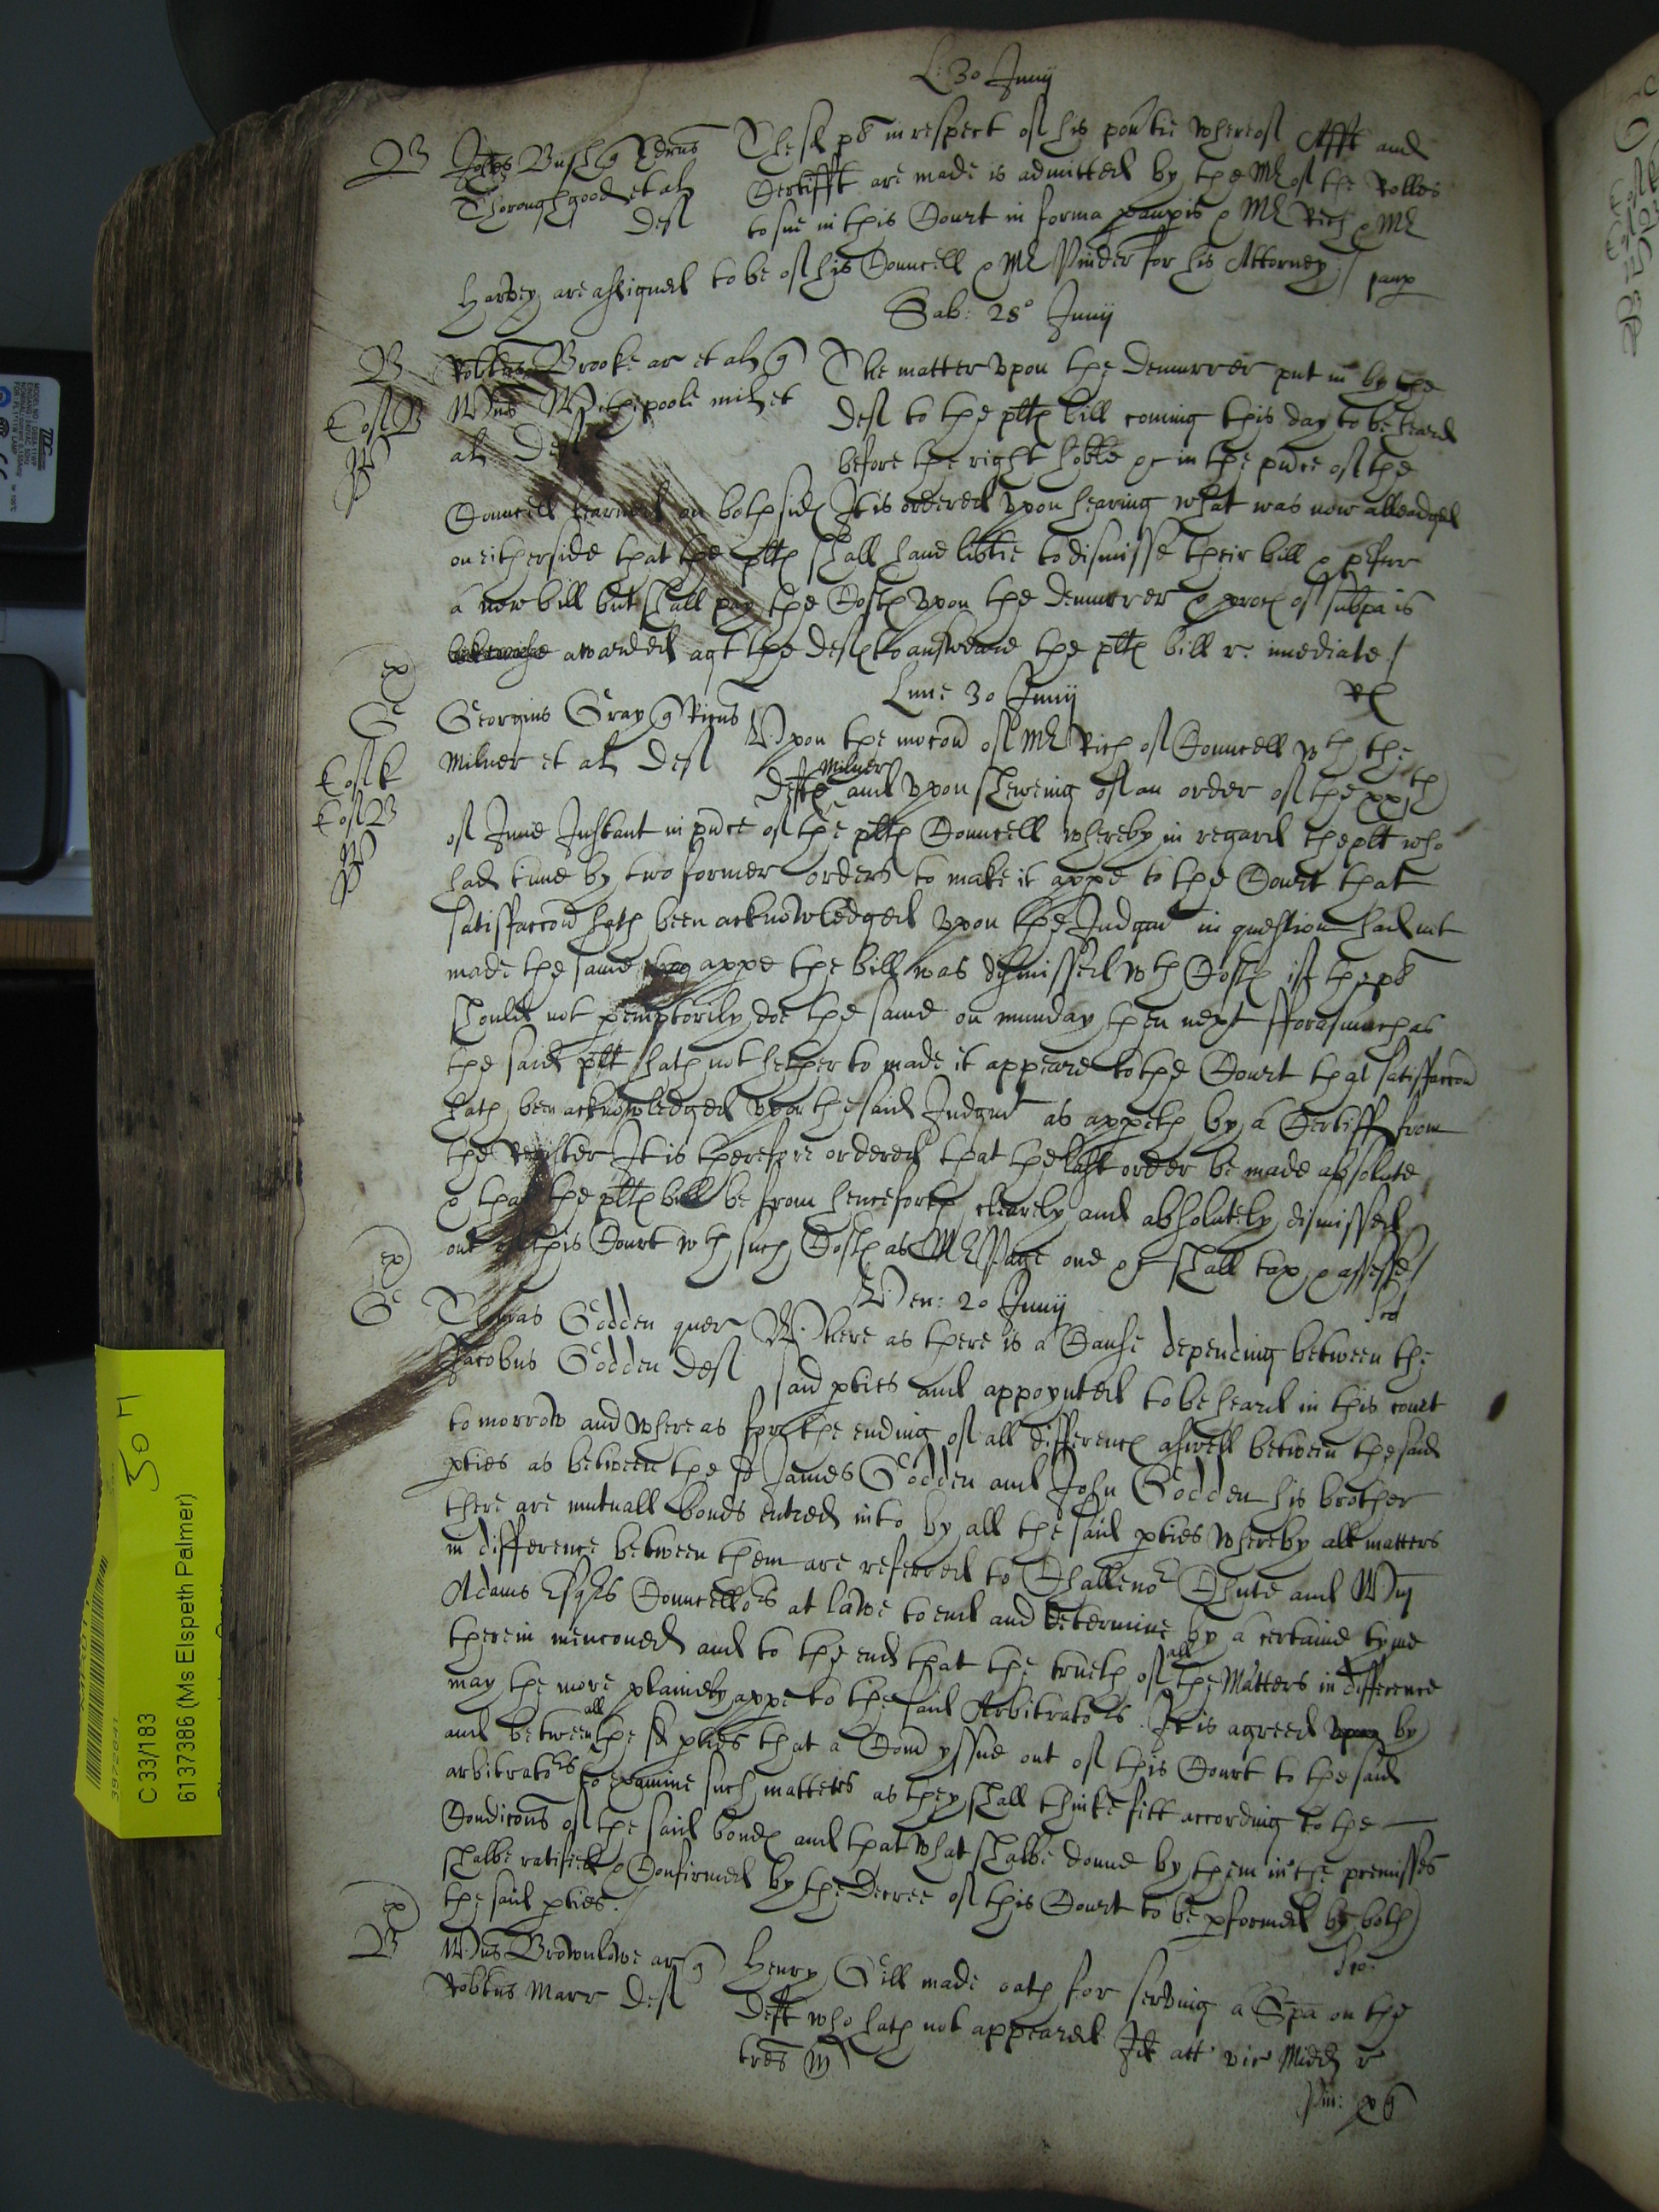 L: 30 Junij
B Joh̃es Bush q̃ Edrus The sd plt in respect of his pov̾tie whereof Afft and
Thoroughgood et al Certifft are made is admitted by the Mr of the Rolles
def to sue in this Court in forma paup̱is & Mr Rich & Mr
Harvey are assigned to be of his Councell & Mr Pinder for his Attorney / paup
Sab: 28o Junij
B Robtus Brooke ar et al q̃ The matter vpon the demurrer put in by the
Wm̃s Withipoole miles et def to the pltes bill coming this day to be heard
al Def before the right hoble &c in the p̃nce of the
Councell learned on both sides It is ordered vpon hearing what was now alleadged
on either side that the pltes shall have lib̃tie to dismisse their bill & p̱fer
a new bill but shall pay the Costes vpon the demurrer & proces of subpa is
likewise awarded agt the defes to answeare the pltes bill r. imediate /
Lune 30 Junij
ex
G Georgius Gray q̃ Ricũs Vpon the moc̃on of Mr Rich of Councell wth the
Milner et al Def Deftes Milner and vpon shewing of an order of the xxjth
of June Instant in p̃nce of the pltes Councell whereby in regard the plt who
had time by two former orders to make it appe to the Court that
satisfacc̃on hath been acknowledged vpon the Judgmt in question had not
made the same appe the bill was dismissed wth Costes if the plt
should not p̱emptorily doe the same on munday then next fforasmuch as
the said plt hath not hetherto made it appeare to the Court that satisfacc̃on
hath been acknowledged vpon the said Judgmt as appeth by a Certiff from
the Register It is therefore ordered that the last order be made absolute
& that the pltes bill be from henceforth clearely and absolutely dismissed
out of this Court wth such Costes as Mr Page one &c shall tax & assesse /
Ven: 20 Junij
ex
G Thomas Godden quer Whereas there is a Cause depending between the
Jacobus Godden Def said p̱ties and appoynted to be heard in this court
to morrow and whereas for the ending of all differences aswell between the said
p̱ties as between the sd James Godden and John Godden his brother
there are mutuall bonds entred into by all the said p̱ties whereby all matters
in difference between them are referred to Challenor Chute and Wm
Adams Esqrs Councellors at lawe to end and determine by a certaine tyme
therein menc̃oned and to the end that the trueth of all the Matters in difference
may the more plainely appe to the said Arbitrators. It is agreed vpon by
and between all the sd p̱ties that a Com̃ yssue out of this Court to the said
arbitrators to examine such matters as they shall thinke fitt according to the
Condic̃ons of the said bondes and that what shalbe donne by them in the premisses
shalbe ratified & Confirmed by the Decree of this Court to be p̱formed by both
the said p̱ties. /
ex
B Wm̃s Brownlowe ar q̃ Henry Gill made oath for serving a Spa on the
Robtus Marr Def Deft who hath not appeared Id̃o att vic Midd r
tres M
C 33/183
6137386 (Ms Elspeth Palmer)
50 H